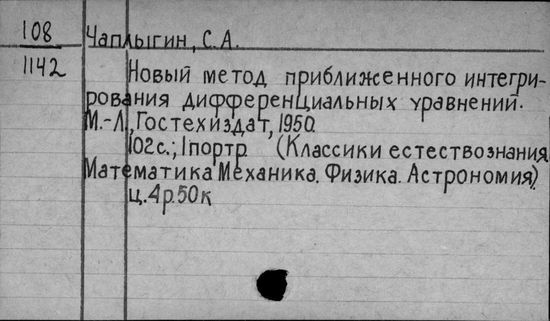 108 Чаплыгин, С.А.
1142 Новый метод приближенного интегри-
рования дифференциальных уравнений.
М.-Л., Гостехиздат, 1950.
102с.; 1портр. (Классики естествознания.
Математика. Механика. Физика. Астрономия).
Ц.4р.50к